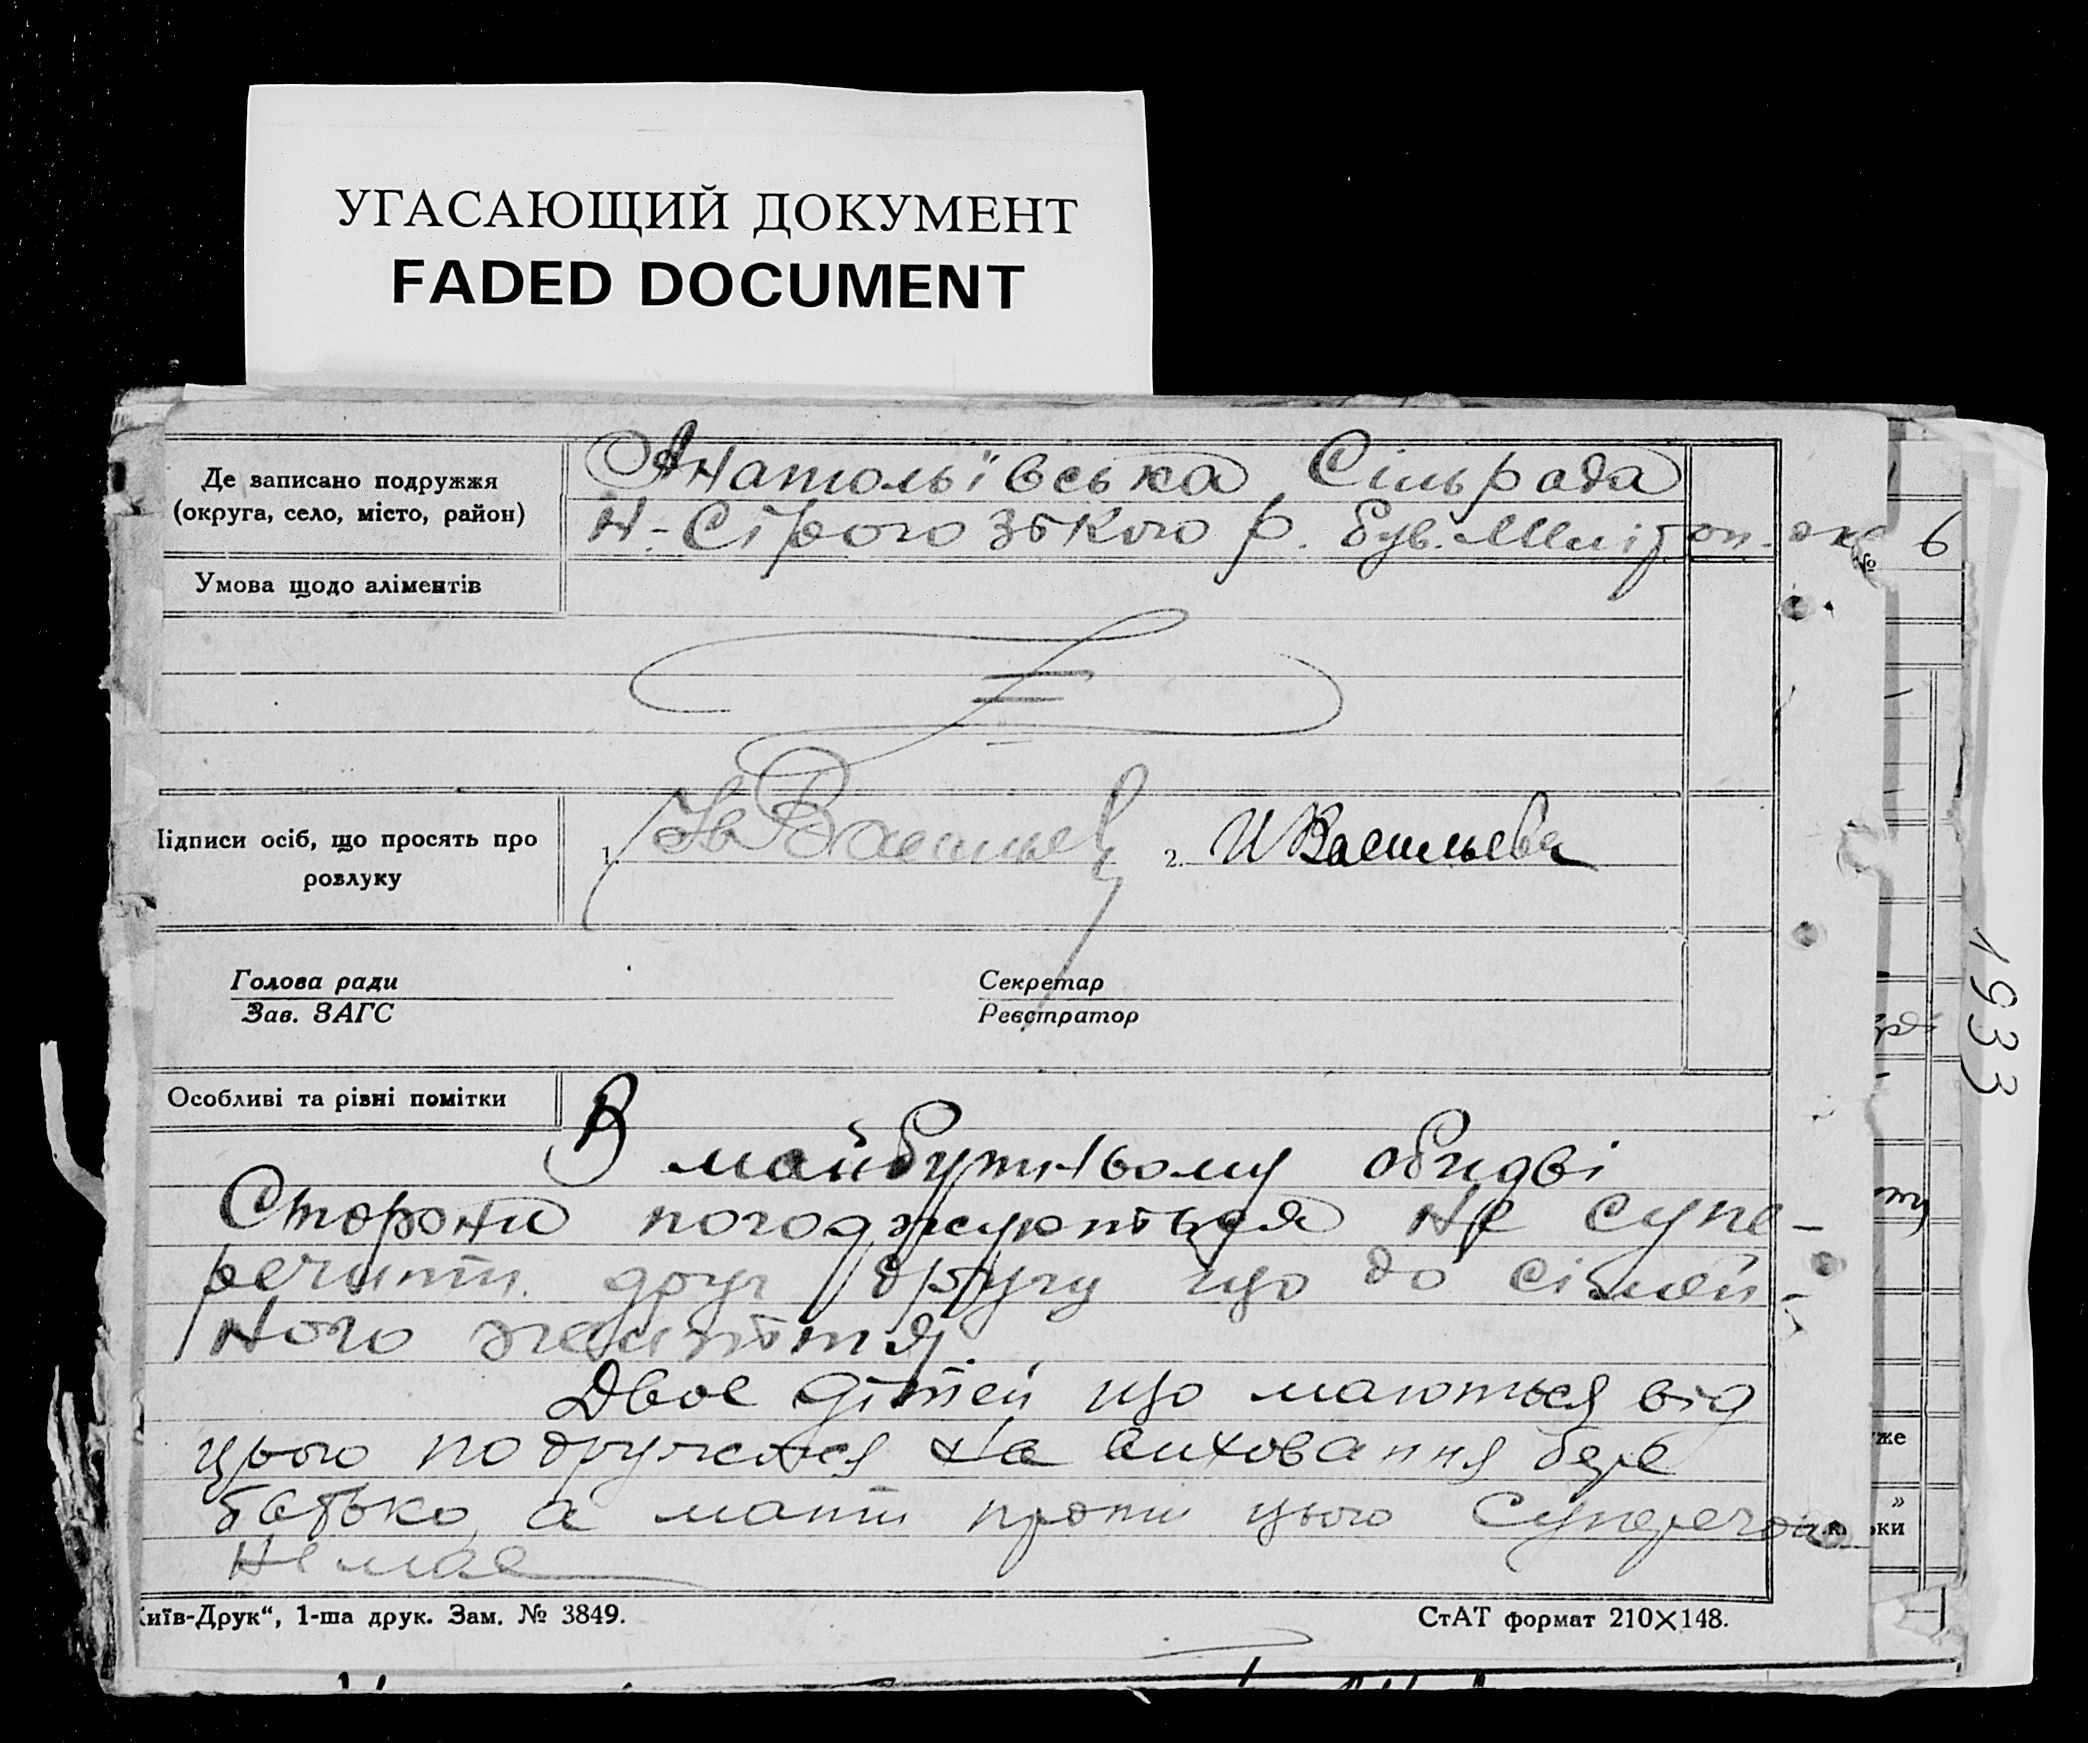 УГАСАЮЩИЙ ДОКУМЕНТ
FADED DOCUMENT
Де записано подружжя
(округа, село, місто, район)
Анатольївська Сільрада
Н-Сірогозького р. був. Меліт оп. окр
6
№
Умова щодо аліментів
Підписи осіб, що просять про
розлуку
1. Ів Васильев 2. И Васильева
Голова ради
Зав. ЗАГС
Секретар
Реєстратор
1933
Особливі та різні помітки
В майбутньому обидві
Сторони погоджуються не супе-
речити друг другу що до сімей-
ного життя.
Двое дітей що маються від
цього подружжя на виховання бере
батько, а мати проти цього Суперечок
немае
уже
»
ки
иїв-Друк“, 1-ша друк. Зам. № 3849.
СтАТ формат 210×148.